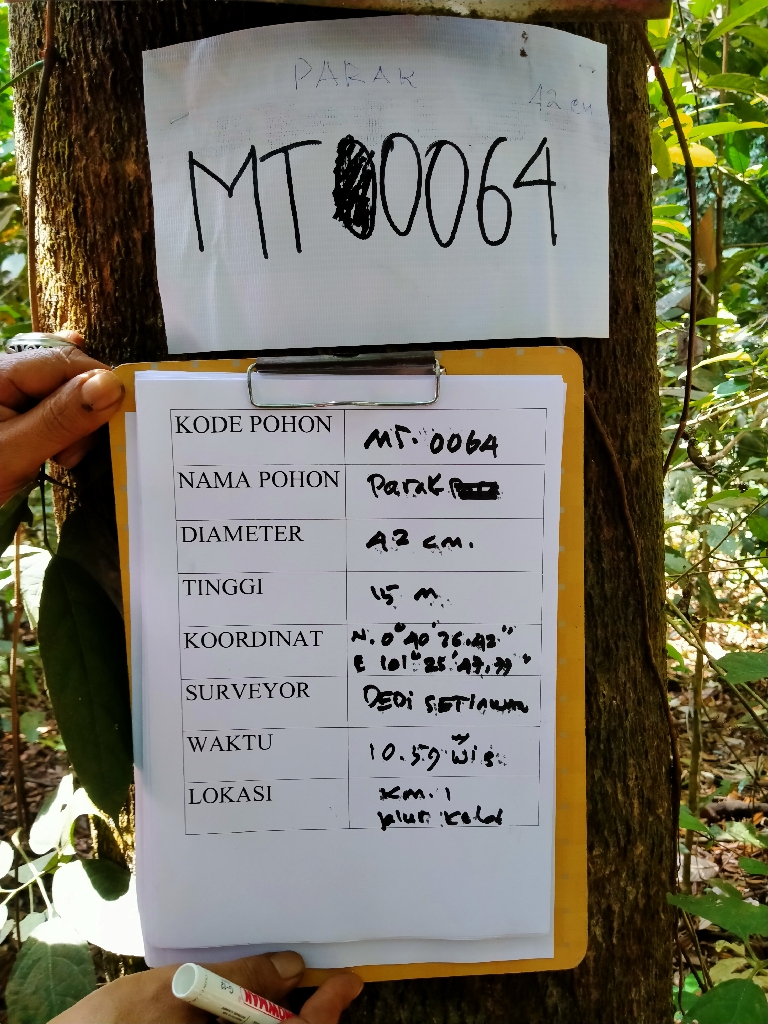 PARAK
42 cm
MT 0064
KODE POHON MT. 0064
NAMA POHON Parak
DIAMETER 42 cm.
TINGGI 15 m
KOORDINAT N. 0° 40' 26.42"
E 101° 25' 47.77"
SURVEYOR DEDI SETIAWAN
WAKTU 10.59 WIB
LOKASI KM. 1
jalur
SNOWMAN